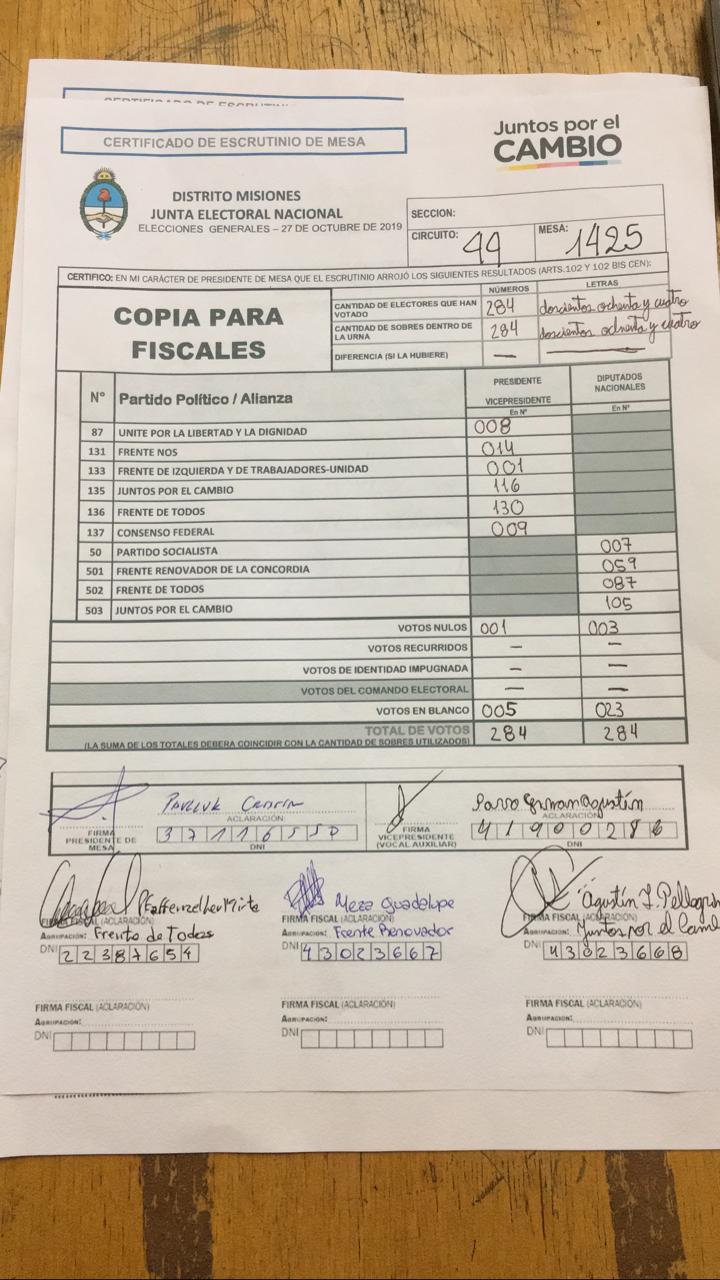 CERTIFICADO DE ESCRUTINIO DE MESA
Juntos por el
CAMBIO
DISTRITO MISIONES
JUNTA ELECTORAL NACIONAL
ELECCIONES GENERALES – 27 DE OCTUBRE DE 2019
SECCION:
CIRCUITO: 44 MESA: 1425
CERTIFICO: EN MI CARÁCTER DE PRESIDENTE DE MESA QUE EL ESCRUTINIO ARROJÓ LOS SIGUIENTES RESULTADOS (ARTS.102 Y 102 BIS CEN):
COPIA PARA
FISCALES
NÚMEROS LETRAS
CANTIDAD DE ELECTORES QUE HAN VOTADO 284 doscientos ochenta y cuatro
CANTIDAD DE SOBRES DENTRO DE LA URNA 284 doscientos ochenta y cuatro
DIFERENCIA (SI LA HUBIERE) —
N° Partido Político / Alianza PRESIDENTE VICEPRESIDENTE En N° DIPUTADOS NACIONALES En N°
87 UNITE POR LA LIBERTAD Y LA DIGNIDAD 008
131 FRENTE NOS 014
133 FRENTE DE IZQUIERDA Y DE TRABAJADORES-UNIDAD 001
135 JUNTOS POR EL CAMBIO 116
136 FRENTE DE TODOS 130
137 CONSENSO FEDERAL 009
50 PARTIDO SOCIALISTA 007
501 FRENTE RENOVADOR DE LA CONCORDIA 059
502 FRENTE DE TODOS 087
503 JUNTOS POR EL CAMBIO 105
VOTOS NULOS 001 003
VOTOS RECURRIDOS — —
VOTOS DE IDENTIDAD IMPUGNADA — —
VOTOS DEL COMANDO ELECTORAL — —
VOTOS EN BLANCO 005 023
TOTAL DE VOTOS 284 284
(LA SUMA DE LOS TOTALES DEBERA COINCIDIR CON LA CANTIDAD DE SOBRES UTILIZADOS)
ACLARACIÓN
FIRMA PRESIDENTE DE MESA DNI
Agustín
ACLARACIÓN
FIRMA VICEPRESIDENTE (VOCAL AUXILIAR) 41900286 DNI
FIRMA FISCAL (ACLARACIÓN)
AGRUPACION: Frente de Todos
DNI 22387654
Meza Guadalupe
FIRMA FISCAL (ACLARACIÓN)
AGRUPACION: Frente Renovador
DNI 43023667
Agustín
FIRMA FISCAL (ACLARACIÓN)
AGRUPACION: Juntos por el
DNI 43023668
FIRMA FISCAL (ACLARACIÓN)
AGRUPACION:
DNI
FIRMA FISCAL (ACLARACIÓN)
AGRUPACION:
DNI
FIRMA FISCAL (ACLARACIÓN)
AGRUPACION:
DNI